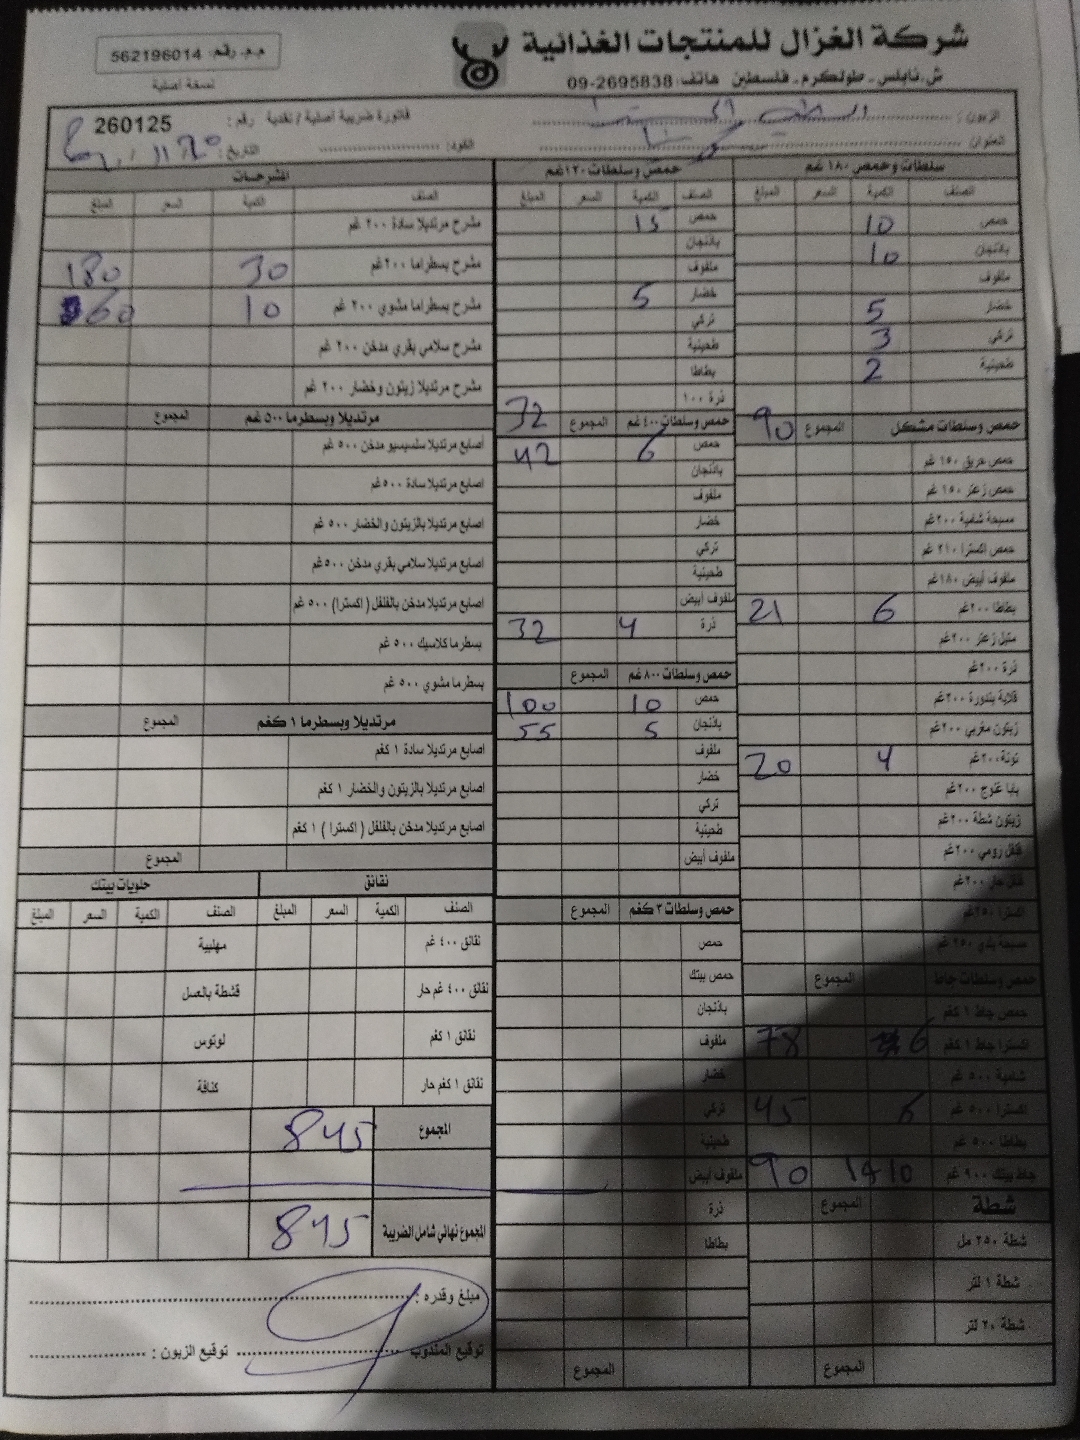 شركة الغزال للمنتجات الغذائية
ش.نابلس - طولكرم - فلسطين هاتف: 09-2695838
م.م. رقم: 562196014
نسخة أصلية
الزبون:
فاتورة ضريبية أصلية / نقدية رقم: 260125
العنوان:
الكود:
التاريخ:
سلطات وحمص ١٨٠ غم
الصنف الكمية السعر المبلغ
حمص 10
باذنجان 10
ملفوف
خضار 5
تركي 3
طحينية 2
حمص وسلطات مشكل المجموع 90
حمص حريق ١٥٠ غم
حمص زعتر ١٥٠ غم
مسبحة شامية ٢٠٠غم
حمص اكسترا ٢١٠ غم
ملفوف أبيض ١٨٠غم
بطاطا ٢٠٠غم 6 21
متبل زعتر ٢٠٠غم
ذرة ٢٠٠غم
قلاية بندورة ٢٠٠غم
زيتون مغربي ٢٠٠غم
تونة ٢٠٠غم 4 20
بابا غنوج ٢٠٠غم
زيتون شطة ٢٠٠غم
فلفل رومي ٢٠٠غم
فلفل حار ٢٠٠غم
اكسترا ٢٥٠غم
مسبحة بلدي ٢٥٠ غم
حمص وسلطات جاط المجموع
حمص جاط ١ كغم
اكسترا جاط ١ كغم 6 78
شامية ٥٠٠ غم
اكسترا ٥٠٠ غم 6 45
بطاطا ٥٠٠ غم
جاط بيتك ٩٠٠ غم 10 90
شطة المجموع
شطة ٢٥٠ مل
شطة ١ لتر
شطة ٢٠ لتر
المجموع
حمص وسلطات ١٢٠غم
الصنف الكمية السعر المبلغ
حمص 15
باذنجان
ملفوف
خضار 5
تركي
طحينية
بطاطا
ذرة ١٠٠ 32
حمص وسلطات ٤٠٠ غم المجموع
حمص 6 42
باذنجان
ملفوف
خضار
تركي
طحينية
ملفوف أبيض
ذرة 4 32
حمص وسلطات ٨٠٠ غم المجموع
حمص 10 100
باذنجان 5 55
ملفوف
خضار
تركي
طحينية
ملفوف أبيض
حمص وسلطات ٣ كغم المجموع
حمص
حمص بيتك
باذنجان
ملفوف
خضار
تركي
طحينية
ملفوف أبيض
ذرة
بطاطا
المجموع
المشرحات
الصنف الكمية السعر المبلغ
مشرح مرتديلا سادة ٢٠٠ غم
مشرح بسطراما ٢٠٠غم 30 180
مشرح بسطراما مشوي ٢٠٠ غم 10 60
مشرح سلامي بقري مدخن ٢٠٠ غم
مشرح مرتديلا زيتون وخضار ٢٠٠ غم
مرتديلا وبسطرما ٥٠٠ غم المجموع
اصابع مرتديلا سلسيسيو مدخن ٥٠٠ غم
اصابع مرتديلا سادة ٥٠٠غم
اصابع مرتديلا بالزيتون والخضار ٥٠٠ غم
اصابع مرتديلا سلامي بقري مدخن ٥٠٠غم
اصابع مرتديلا مدخن بالفلفل ( اكسترا) ٥٠٠ غم
بسطرما كلاسيك ٥٠٠ غم
بسطرما مشوي ٥٠٠ غم
مرتديلا وبسطرما ١ كغم المجموع
اصابع مرتديلا سادة ١ كغم
اصابع مرتديلا بالزيتون والخضار ١ كغم
اصابع مرتديلا مدخن بالفلفل ( اكسترا ) ١ كغم
المجموع
نقانق حلويات بيتك
الصنف الكمية السعر المبلغ الصنف الكمية السعر المبلغ
نقانق ٤٠٠ غم مهلبية
نقانق ٤٠٠ غم حار قشطة بالعسل
نقانق ١ كغم لوتوس
نقانق ١ كغم حار كنافة
المجموع 845
المجموع نهائي شامل الضريبة 845
مبلغ وقدره:
توقيع المندوب توقيع الزبون: